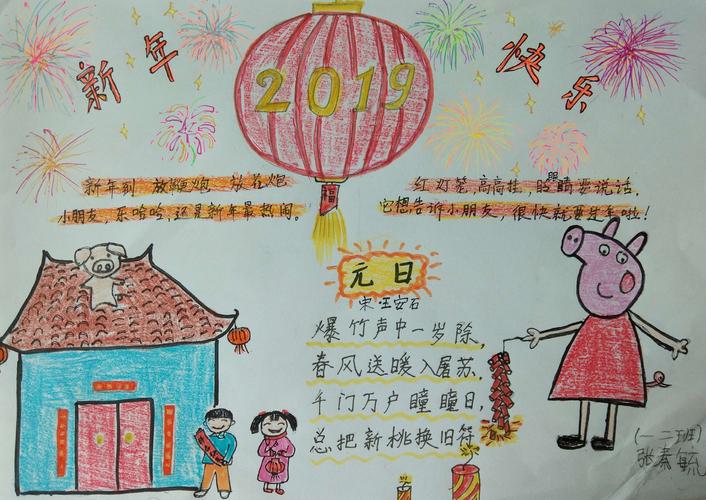 新年 快乐
2019
福
新年到,放鞭炮,放花炮
小朋友,乐哈哈,还是新年最热闹。
红灯笼,高高挂,眨眼睛要说话,
它想告诉小朋友,很快就要过年啦!
元日
宋·王安石
爆竹声中一岁除,
春风送暖入屠苏.
千门万户瞳瞳日,
总把新桃换旧符
(一·二班)
张